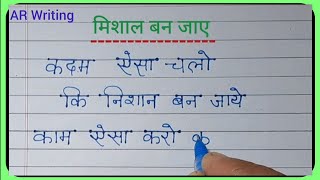 AR Writing
मिशाल बन जाए
कदम ऐसा चलो
कि निशान बन जाये
काम ऐसा करो